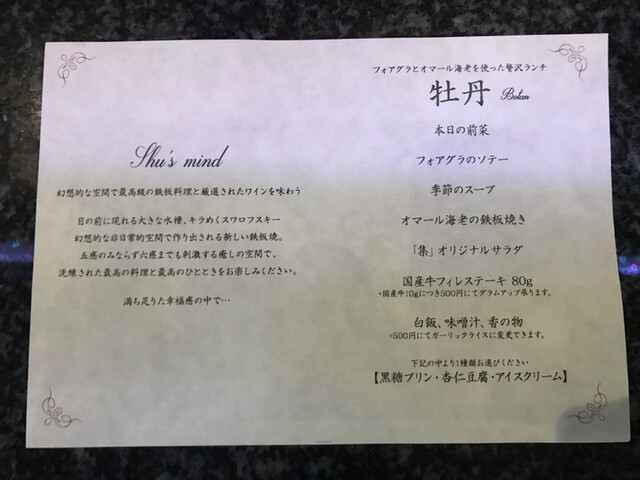 Shu's mind
幻想的な空間で最高級の鉄板料理と厳選されたワインを味わう
目の前に現れる大きな水槽、キラめくスワロフスキー
幻想的な非日常的空間で作り出される新しい鉄板焼。
五感のみならず六感までも刺激する癒しの空間で、
洗練された最高の料理と最高のひとときをお楽しみください。
満ち足りた幸福感の中で…
フォアグラとオマール海老を使った贅沢ランチ
牡丹 Botan
本日の前菜
フォアグラのソテー
季節のスープ
オマール海老の鉄板焼き
「集」オリジナルサラダ
国産牛フィレステーキ 80g
+国産牛10gにつき500円にてグラムアップ承ります。
白飯、味噌汁、香の物
+500円にてガーリックライスに変更できます。
下記の中より1種類お選びください
【黒糖プリン・杏仁豆腐・アイスクリーム】